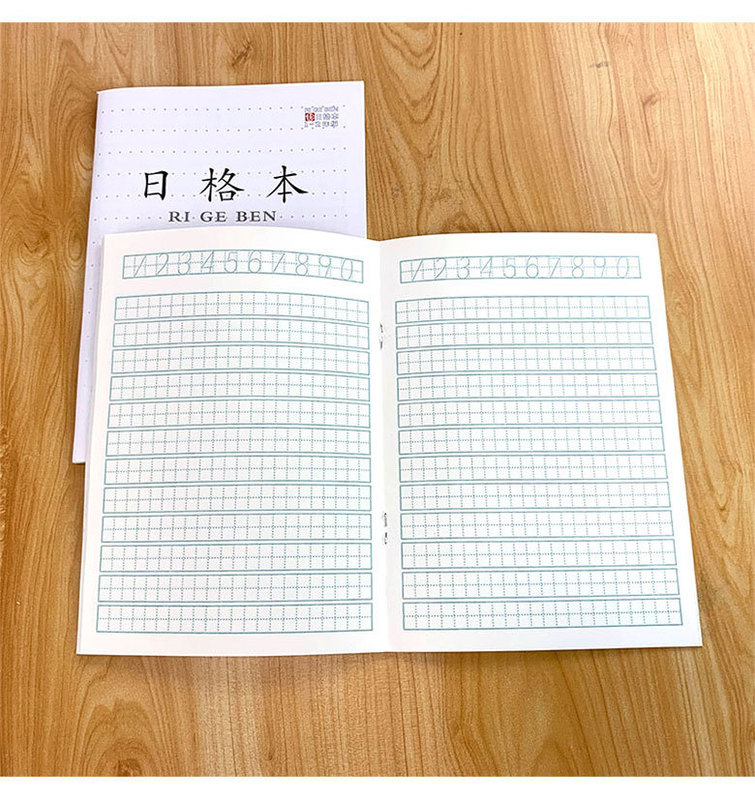 日格本
RI GE BEN
1234567890
1234567890